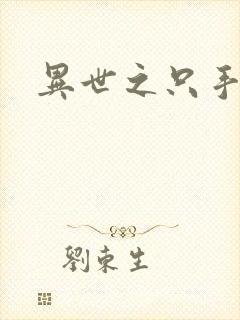 異世之只手
劉東生